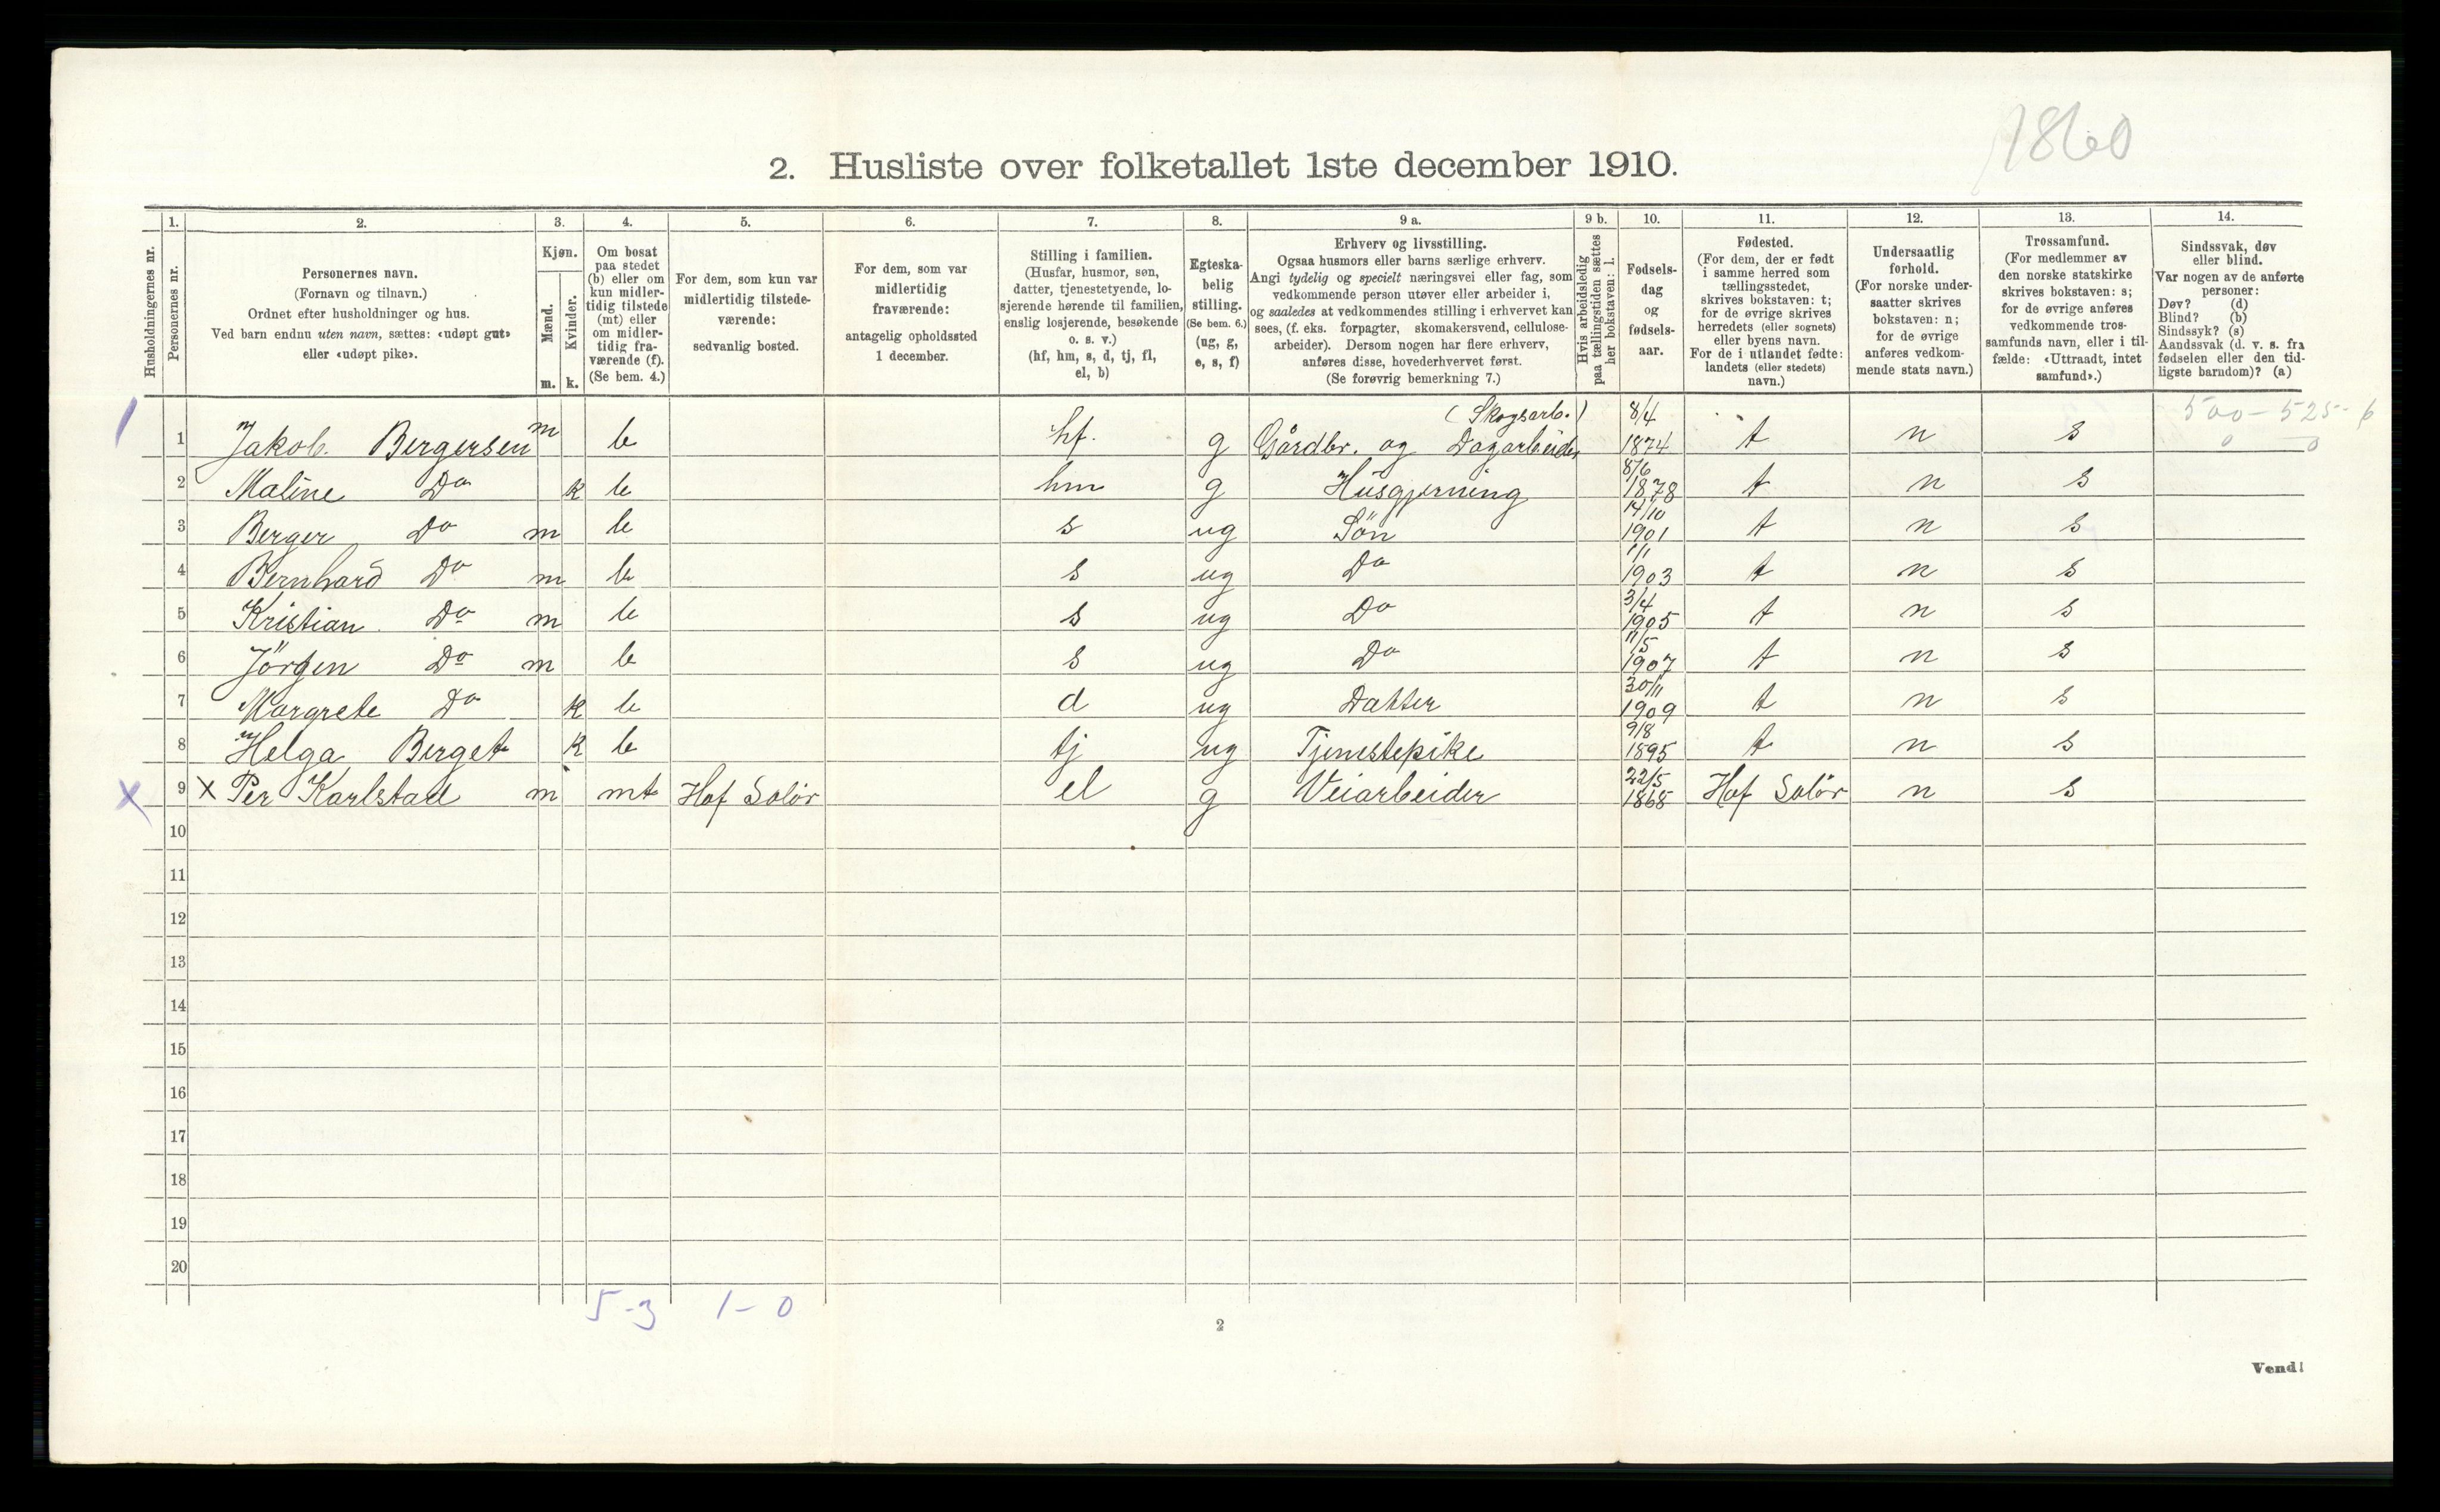 1860
2. Husliste over folketallet 1ste december 1910.
Husholdningernes nr.
1. Personernes nr.
2. Personernes navn.
(Fornavn og tilnavn.)
Ordnet efter husholdninger og hus.
Ved barn endnu uten navn, sættes: «udøpt gut»
eller «udøpt pike».
3. Kjøn.
Mænd. m.
Kvinder. k.
4. Om bosat
paa stedet
(b) eller om
kun midler-
tidig tilstede
(mt) eller
om midler-
tidig fra-
værende (f).
(Se bem. 4.)
5. For dem, som kun var
midlertidig tilstede-
værende:
sedvanlig bosted.
6. For dem, som var
midlertidig
fraværende:
antagelig opholdssted
1 december.
7. Stilling i familien.
(Husfar, husmor, søn,
datter, tjenestetyende, lo-
sjerende hørende til familien,
enslig losjerende, besøkende
o. s. v.)
(hf, hm, s, d, tj, fl,
el, b)
8. Egteska-
belig
stilling.
(Se bem. 6.)
(ug, g,
e, s, f)
9 a. Erhverv og livsstilling.
Ogsaa husmors eller barns særlige erhverv.
Angi tydelig og specielt næringsvei eller fag, som
vedkommende person utøver eller arbeider i,
og saaledes at vedkommendes stilling i erhvervet kan
sees, (f. eks. forpagter, skomakersvend, cellulose-
arbeider). Dersom nogen har flere erhverv,
anføres disse, hovederhvervet først.
(Se forøvrig bemerkning 7.)
9 b. Hvis arbeidsledig
paa tællingstiden sættes
her bokstaven: l.
10. Fødsels-
dag
og
fødsels-
aar.
11. Fødested.
(For dem, der er født
i samme herred som
tællingsstedet,
skrives bokstaven: t;
for de øvrige skrives
herredets (eller sognets)
eller byens navn.
For de i utlandet fødte:
landets (eller stedets)
navn.)
12. Undersaatlig
forhold.
(For norske under-
saatter skrives
bokstaven: n;
for de øvrige
anføres vedkom-
mende stats navn.)
13. Trossamfund.
(For medlemmer av
den norske statskirke
skrives bokstaven: s;
for de øvrige anføres
vedkommende tros-
samfunds navn, eller i til-
fælde: «Uttraadt, intet
samfund».)
14. Sindssvak, døv
eller blind.
Var nogen av de anførte
personer:
Døv? (d)
Blind? (b)
Sindssyk? (s)
Aandssvak (d. v. s. fra
fødselen eller den tid-
ligste barndom)? (a)
(Skogsarb.) 8/4 500 - 525 - 6
1 Jakob Bergersen m b hf. g Gårdbr. og Dagarbeider 1874 t n s 0 0
2 Maline Do k b hm g Husgjerning 8/6 1878 t n s
3 Berger Do m b s ug Sön 14/10 1901 t n s
4 Bernhard Do m b s ug Do 1/1 1903 t n s
5 Kristian Do m b s ug Do 3/4 1905 t n s
6 Jörgen Do m b s ug Do 11/5 1907 t n s
7 Margrete Do k b d ug Datter 30/11 1909 t n s
8 Helga Berget k b tj ug Tjenestepike 9/8 1895 t n s
x 9 x Per Karlstad m mt Hof Solör el g Veiarbeider 22/5 1868 Hof Solör n s
10
11
12
13
14
15
16
17
18
19
20
5-3 1-0
2
Vend!